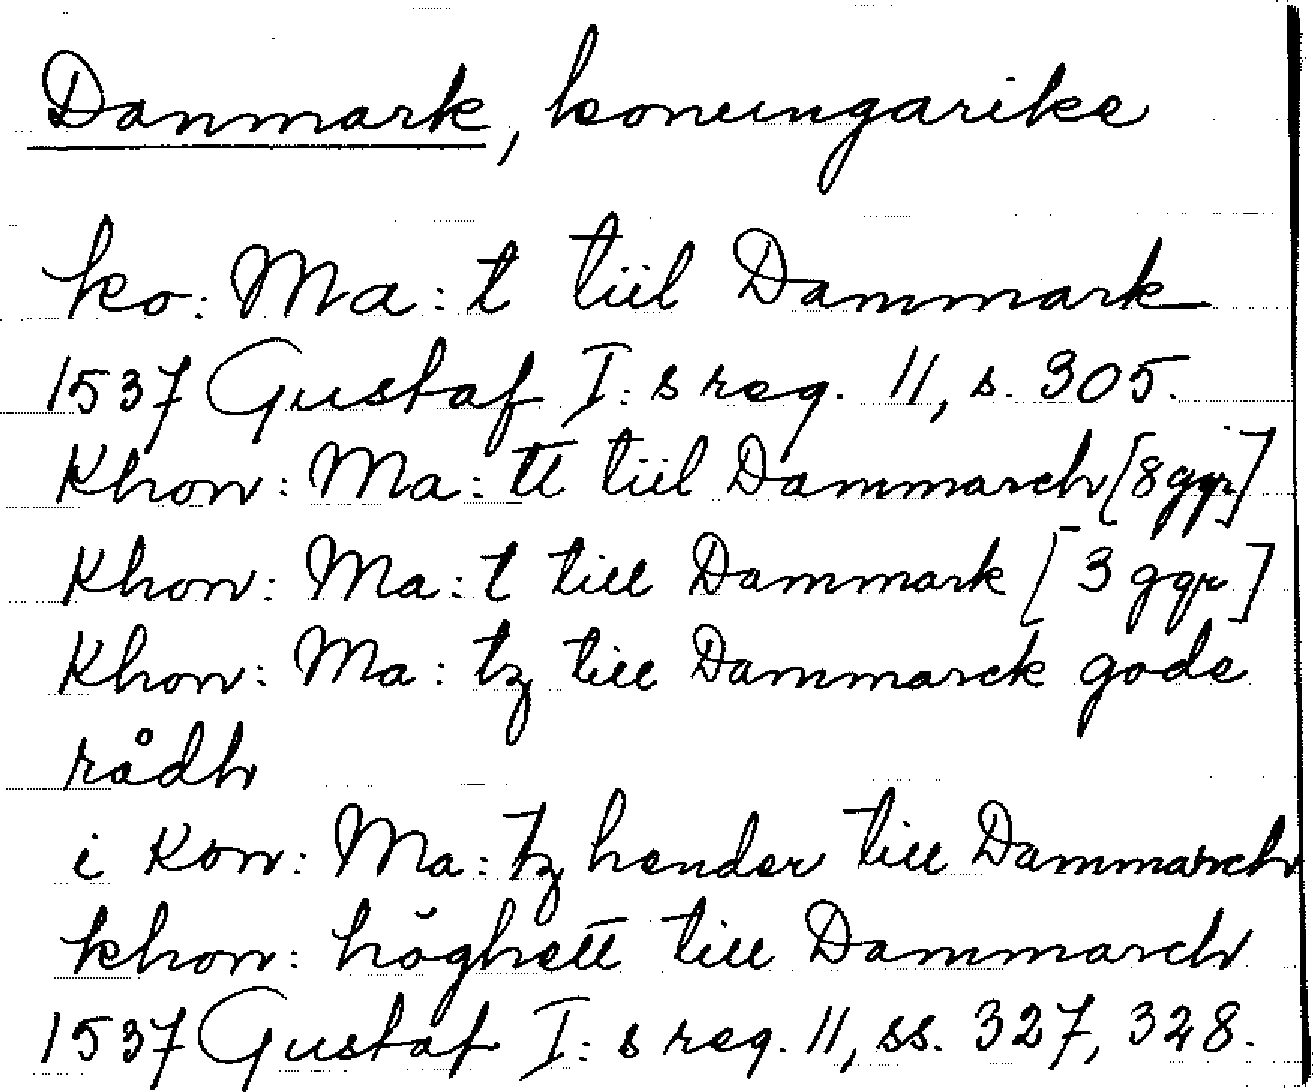 Danmark, konungarike
ko: Ma: t tiil Dammark
1537 Gustaf I: s reg. 11, s. 305.
Khon: Ma: tt tiil Dammarch [8 ggr]
Khon: Ma: t till Dammark [3 ggr]
Khon: Ma: tz till Dammarck gode
rådh
i Kon: Ma: tz hender till Dammarch
khon: höghett till Dammarch
1537 Gustaf I: s reg. 11, ss. 327, 328.